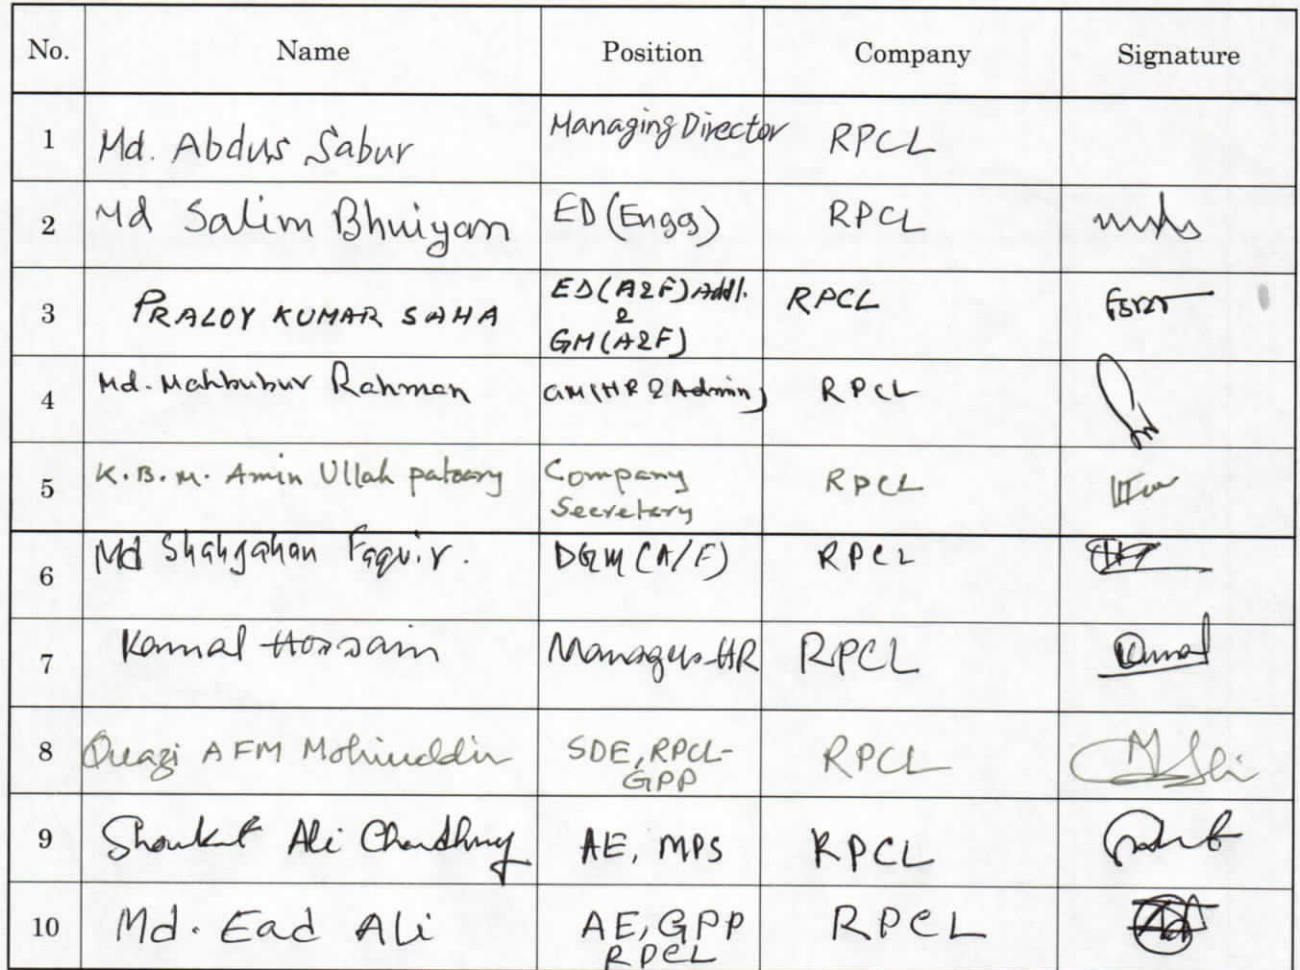 No. Name Position Company Signature
1 Md. Abdus Sabur Managing Director RPCL
2 Md Salim Bhuiyan ED (Engg) RPCL
3 PRALOY KUMAR SAHA ED(A&F) Addl. RPCL
&
GM(A&F)
4 Md. Mahbubur Rahman GM(HR & Admin) RPCL
5 K.B.M. Amin Ullah patoary Company RPCL
Secretary
6 Md Shahjahan Faquir. DGM (A/F) RPCL
7 Kamal Hossain Manager-HR RPCL
8 Quazi AFM Mohiuddin SDE, RPCL- RPCL
GPP
9 Shoukat Ali Choudhury AE, MPS RPCL
10 Md. Ead Ali AE, GPP RPCL
RPCL